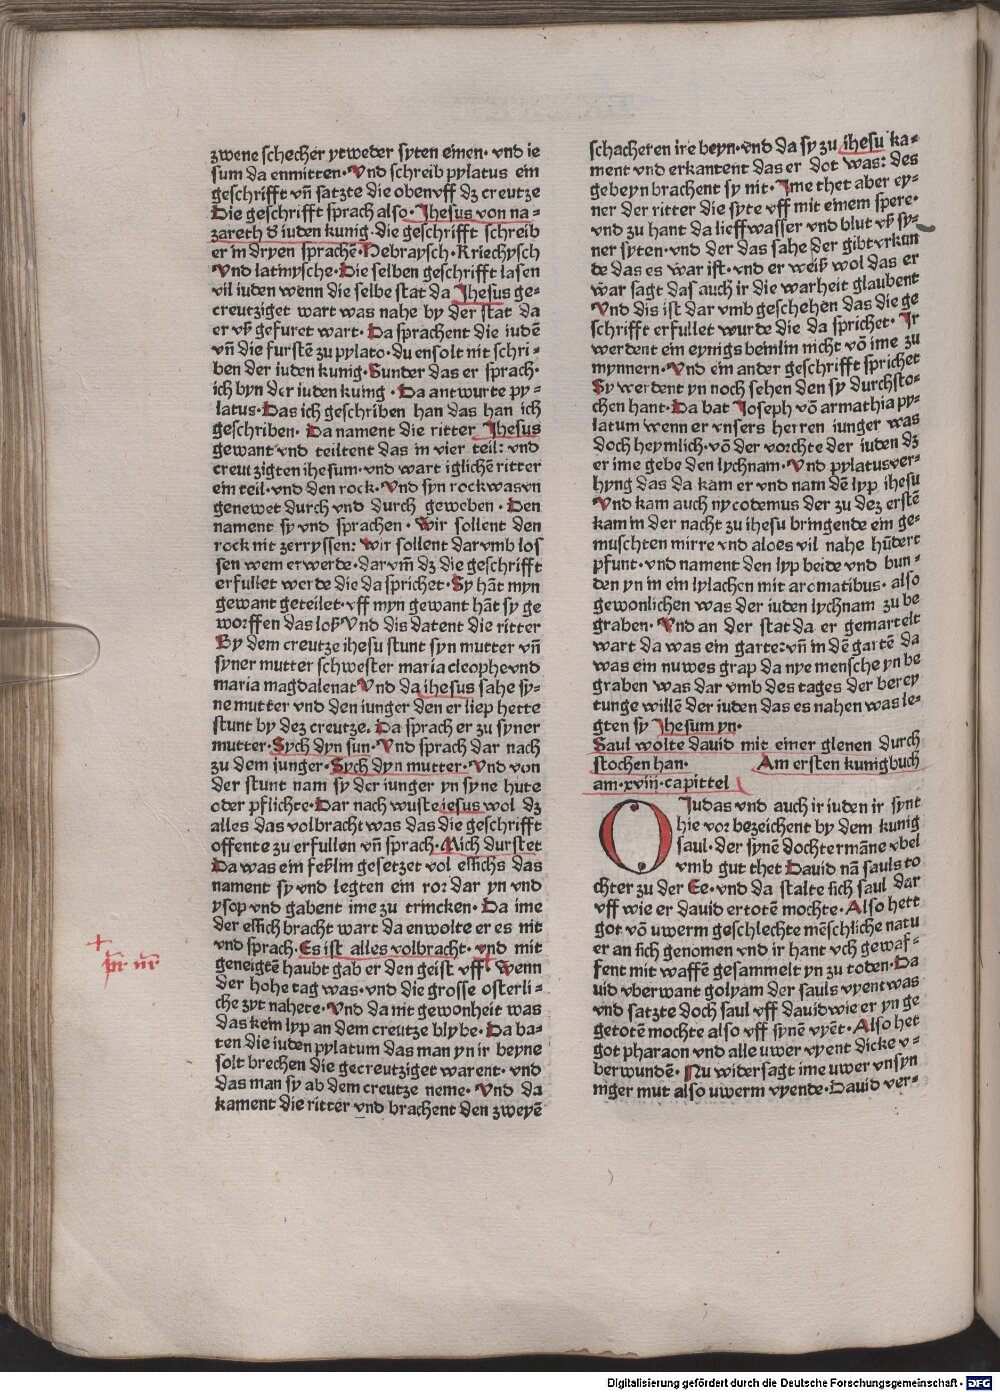 zwene schecher ytweder syten einen· vnd ie
sum da enmitten· Vnd schreib pylatus ein
geschrifft vn̄ satzte die oben vff dz creutze
Die geschrifft sprach also· Jhesus von na⸗
zareth d̕ iuden kunig· die geschrifft schreib
er in dryen sprachē· Hebraysch· Kriechysch
Vnd latinysche· Die selben geschrifft lasen
vil iuden wenn die selbe stat da Jhesus ge⸗
creutziget wart was nahe by der stat da
er vß gefuret wart· Da sprachent die iudē
vn̄ die furstē zu pylato· du ensolt nit schri⸗
ben der iuden kunig· Sunder das er sprach·
ich byn der iuden kunig· Da antwurte py⸗
latus· Das ich geschriben han das han ich
geschriben· Da nament die ritter Jhesus
gewant vnd teiltent das in vier teil: vnd
creutzigten ihesum· vnd wart iglichē ritter
ein teil· vnd den rock· Vnd syn rock was vn
genewet durch vnd durch geweben· Den
nament sy vnd sprachen· Wir sollent den
rock nit zerryssen: Wir sollent dar vmb los
sen wem er werde· dar vm̄ dz die geschrifft
erfullet werde die da sprichet· Sy hāt myn
gewant geteilet· vff myn gewant hāt sy ge
worffen das loß Vnd dis datent die ritter
By dem creutze ihesu stunt syn mutter vn̄
syner mutter schwester maria cleophe vnd
maria magdalena Vnd da ihesus sahe sy⸗
ne mutter vnd den iunger den er liep hette
stunt by dez creutze. Da sprach er zu syner
mutter· Sych dyn sun· Vnd sprach dar nach
zu dem iunger· Sych dyn mutter· Vnd von
der stunt nam sy der iunger yn syne hute
oder pflichte· Dar nach wuste iesus wol dz
alles das volbracht was das die geschrifft
offente zu erfullen vn̄ sprach· Mich durstet
Da was ein feßlin gesetzet vol essichs das
nament sy vnd legten ein ror dar yn vnd
ysop vnd gabent ime zu trincken· Da ime
der essich bracht wart da enwolte er es nit
vnd sprach· Es ist alles volbracht· vnd mit
geneigtē haubt gab er den geist vff· Wenn
der hohe tag was· vnd die grosse osterli⸗
che zyt nahete· Vnd da nit gewonheit was
das kein lyp an dem creutze blybe· Da ba⸗
ten die iuden pylatum das man yn ir beyne
solt brechen die gecreutziget warent· vnd
das man sy ab dem creutze neme· Vnd da
kament die ritter vnd brachent den zweyē
schacheren ire beyn· vnd da sy zu ihesu ka⸗
ment vnd erkantent das er dot was: des
gebeyn brachent sy nit· Ime thet aber ey⸗
ner der ritter die syte vff mit einem spere·
vnd zu hant da lieff wasser vnd blut vß sy⸗
ner syten· vnd der das sahe der gibt vrkun
de das es war ist· vnd er weiß wol das er
war sagt das auch ir die warheit glaubent
Vnd dis ist dar vmb geschehen das die ge
schrifft erfullet wurde die da sprichet· Ir
werdent ein eynigs beinlin nicht vō ime zu
mynnern· Vnd ein ander geschrifft sprichet
Sy werdent yn noch sehen den sy durchsto⸗
chen hant· Da bat Joseph vō armathia py⸗
latum wenn er vnsers herren iunger was
doch heymlich· vō der vorchte der iuden dz
er ime gebe den lychnam· Vnd pylatus ver⸗
hyng das da kam er vnd nam dē lyp ihesu
Vnd kam auch nycodemus der zu dez erstē
kam in der nacht zu ihesu bringende ein ge⸗
muschten mirre vnd aloes vil nahe hūdert
pfunt· vnd nament den lyp beide vnd bun⸗
den yn in ein lylachen mit aromatibus· also
gewonlichen was der iuden lychnam zu be
graben· Vnd an der stat da er gemartelt
wart da was ein garte: vn̄ in dē gartē da
was ein nuwes grap da nye mensche yn be
graben was dar vmb des tages der berey
tunge willē der iuden das es nahen was le⸗
gten sy Jhesum yn·
Saul wolte dauid mit einer glenen durch
stochen han· Am ersten kunigbuch
am· xviij· capittel
O Judas vnd auch ir iuden ir synt
hie vor bezeichent by dem kunig
saul· der synē dochtermāne vbel
vmb gut thet Dauid nā sauls to
chter zu der Ee· vnd da stalte sich saul dar
vff wie er dauid ertotē mochte· Also hett
got vō uwerm geschlechte mēschliche natu
er an sich genomen vnd ir hant vch gewaf⸗
fent mit waffē gesammelt yn zu toden· Da
uid vberwant golyam der sauls vyent was
vnd satzte doch saul vff dauid wie er yn ge
getotē mochte also vff synē vyēt· Also het
got pharaon vnd alle uwer vyent dicke v⸗
berwundē· Nu widersagt ime uwer vnsyn
niger mut also uwerm vyende· Dauid ver⸗